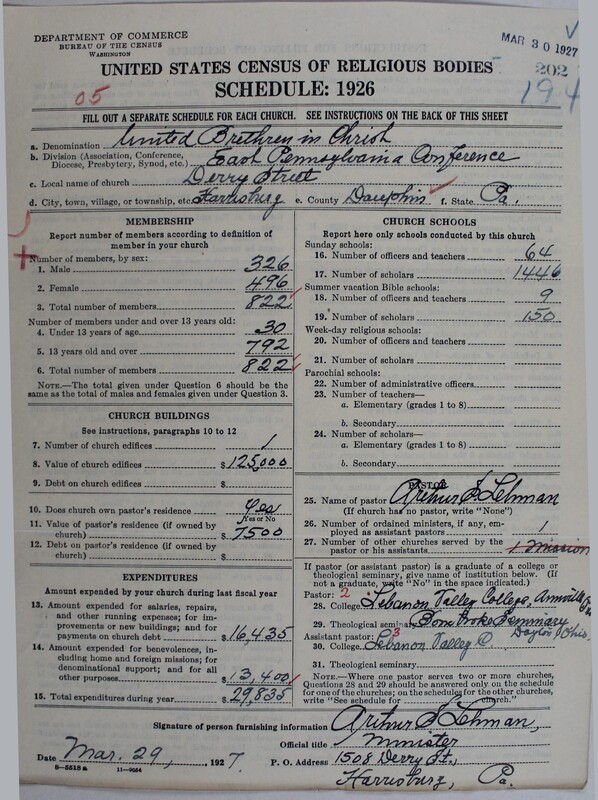 DEPARTMENT OF COMMERCE
BUREAU OF THE CENSUS
WASHINGTON
MAR 30 1927
202
194
UNITED STATES CENSUS OF RELIGIOUS BODIES
SCHEDULE: 1926
05
FILL OUT A SEPARATE SCHEDULE FOR EACH CHURCH. SEE INSTRUCTIONS ON THE BACK OF THIS SHEET
a. Denomination United Brethren in Christ
b. Division (Association, Conference, Diocese, Presbytery, Synod, etc.) East Pennsylvania Conference
c. Local name of church Derry Street
d. City, town, village, or township, etc. Harrisburg e. County Dauphin f. State Pa.
MEMBERSHIP
Report number of members according to definition of
member in your church
Number of members, by sex:
1. Male 326
2. Female 496
3. Total number of members 822
Number of members under and over 13 years old:
4. Under 13 years of age 30
5. 13 years old and over 792
6. Total number of members 822
NOTE.—The total given under Question 6 should be the
same as the total of males and females given under Question 3.
CHURCH BUILDINGS
See instructions, paragraphs 10 to 12
7. Number of church edifices 1
8. Value of church edifices $125,000
9. Debt on church edifices $
10. Does church own pastor's residence? Yes
Yes or No
11. Value of pastor's residence (if owned by
church) $7500
12. Debt on pastor's residence (if owned by
church) $
EXPENDITURES
Amount expended by your church during last fiscal year
13. Amount expended for salaries, repairs,
and other running expenses; for im-
provements or new buildings; and for
payments on church debt $16,435
14. Amount expended for benevolences, in-
cluding home and foreign missions; for
denominational support; and for all
other purposes $13,400
15. Total expenditures during year $29,835
CHURCH SCHOOLS
Report here only schools conducted by this church
Sunday schools:
16. Number of officers and teachers 64
17. Number of scholars 1446
Summer vacation Bible schools:
18. Number of officers and teachers 9
19. Number of scholars 150
Week-day religious schools:
20. Number of officers and teachers
21. Number of scholars
Parochial schools:
22. Number of administrative officers
23. Number of teachers—
a. Elementary (grades 1 to 8)
b. Secondary
24. Number of scholars—
a. Elementary (grades 1 to 8)
b. Secondary
PASTOR
25. Name of pastor Arthur S. Lehman
(If church has no pastor, write "None")
26. Number of ordained ministers, if any, em-
ployed as assistant pastors 1
27. Number of other churches served by the
pastor or his assistants 1 mission
If pastor (or assistant pastor) is a graduate of a college or
theological seminary, give name of institution below. (If
not a graduate, write "No" in the space indicated.)
Pastor: 2
28. College Lebanon Valley College, Annville, Pa
29. Theological seminary Bonebrake Seminary
Dayton Ohio.
Assistant pastor: 3
30. College Lebanon Valley C
31. Theological seminary
NOTE.—Where one pastor serves two or more churches,
Questions 28 and 29 should be answered only on the schedule
for one of the churches; on the schedule for the other churches,
write "See schedule for church."
Signature of person furnishing information Arthur S. Lehman,
Official title Minister
Date Mar. 29, 1927. P. O. Address 1508 Derry St.,
8-5518a 11-9654
Harrisburg, Pa.